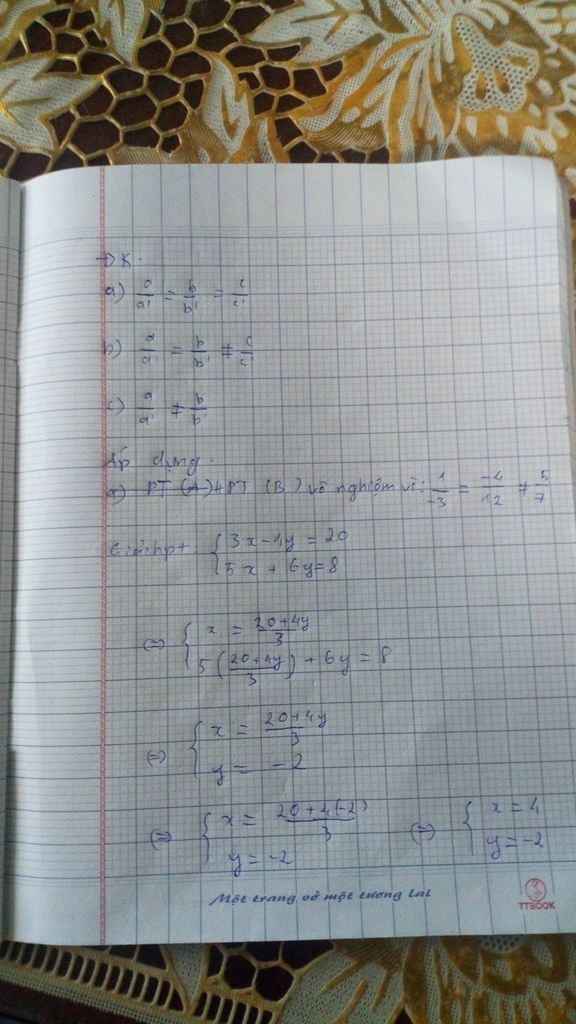 ĐK:
a) a/a' = b/b' = c/c'
b) a/a' = b/b' ≠ c/c'
c) a/a' ≠ b/b'
Áp dụng:
a) PT (A) + PT (B) vô nghiệm vì: 1/-3 = -4/12 ≠ 5/7
Giải hpt: { 3x - 4y = 20
5x + 6y = 8
⇔ { x = (20 + 4y)/3
5((20 + 4y)/3) + 6y = 8
⇔ { x = (20 + 4y)/3
y = -2
⇔ { x = (20 + 4(-2))/3 ⇔ { x = 4
y = -2 y = -2
Một trang vở một tương lai
TTBOOK